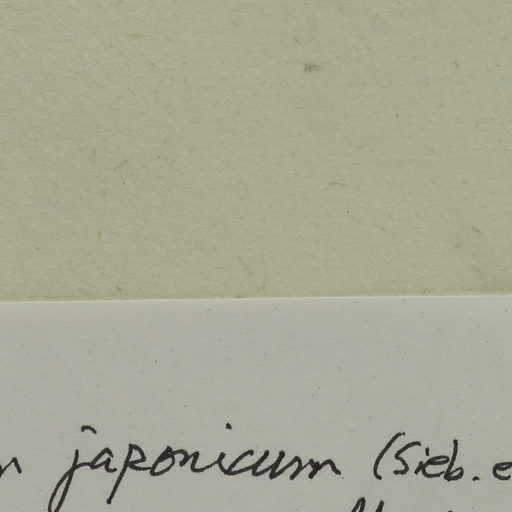 japonicum (Sieb.